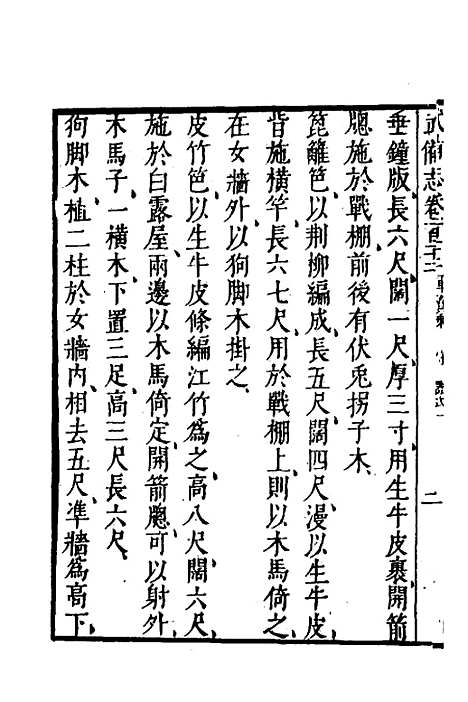 武備志卷一百十三
二
垂鐘版、長六尺、闊一尺、厚三寸、用生牛皮裹、開箭
牕、施於戰棚、前後有伏兎拐子木、
箆籬笆、以荆柳編成、長五尺、闊四尺、漫以生牛皮、
背施横竿、長六七尺、用於戰棚上、則以木馬倚之、
在女牆外、以狗脚木掛之、
皮竹笆、以生牛皮條編江竹爲之、高八尺、闊六尺、
施於白露屋兩邊、以木馬倚定、開箭牕、可以射外、
木馬子、一横木、下置三足、高三尺、長六尺、
狗脚木、植二柱於女牆内、相去五尺、凖牆爲高下、